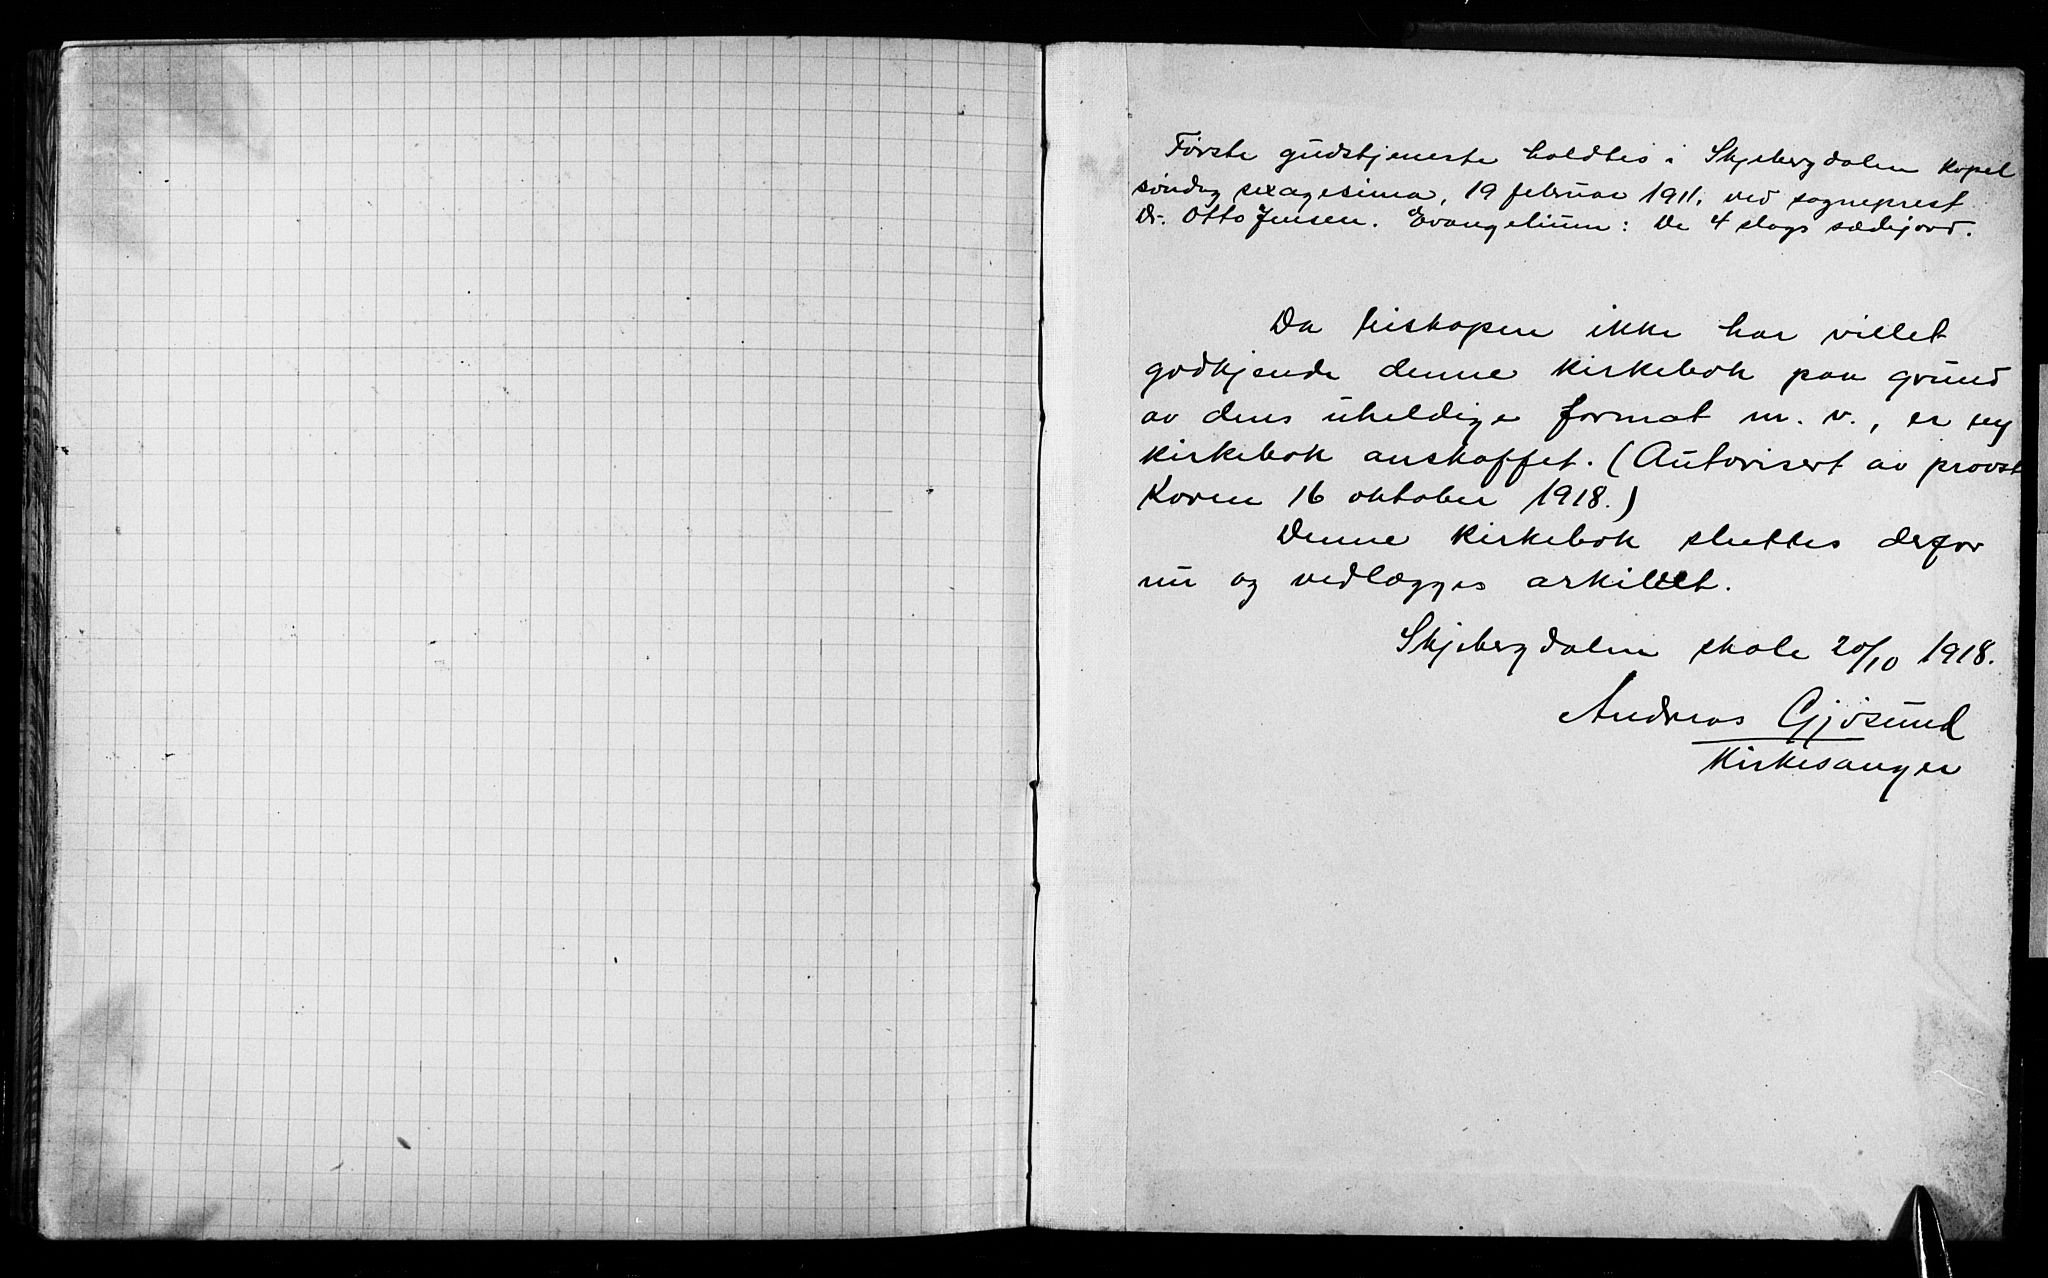 Første gudstjeneste holdtes i Skjebergdalen Kapel
søndag sexagesima, 19 februar 1911, ved sogneprest
Dr. Otto Jensen. Evangelium: De 4 slags sædejord.
Da biskopen ikke har villet
godkjende denne kirkebok paa grund
av dens uheldige format m. v., er ny
kirkebok anskaffet. (Autorisert av provst
Koren 16 oktober 1918.)
Denne kirkebok sluttes derfor
nu og vedlægges arkivet.
Skjebergdalen skole 20/10 1918.
Andreas Gjøsund
Kirkesanger